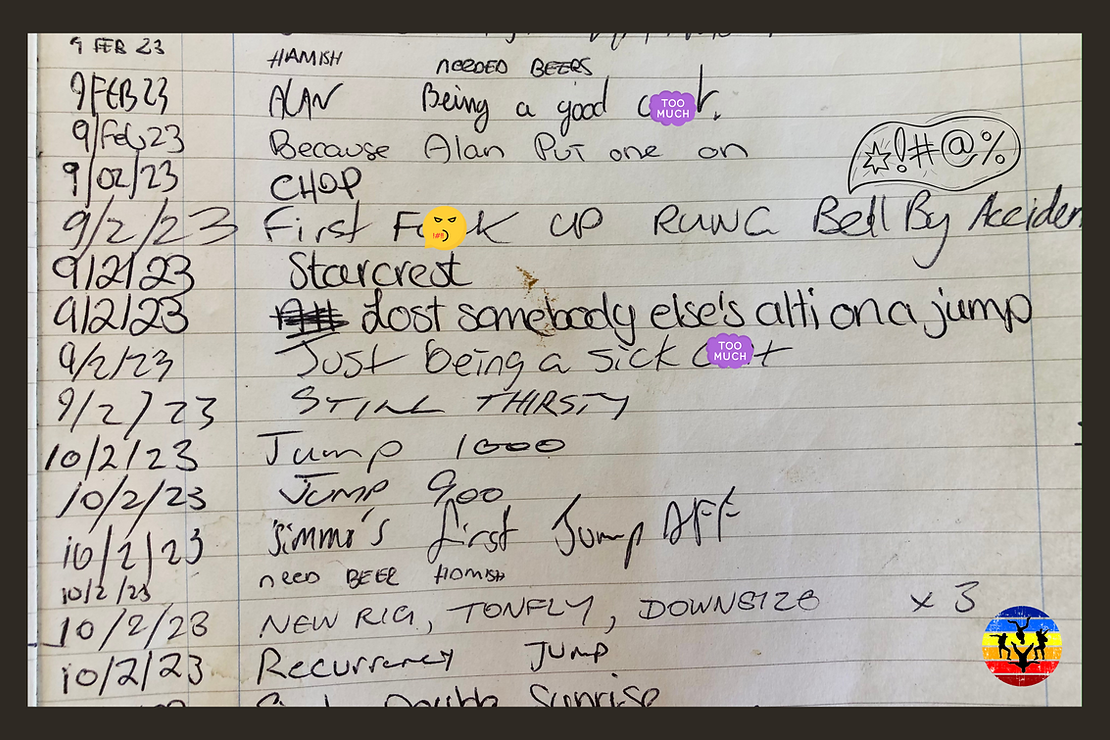 9 FEB 23 HAMISH NEEDED BEERS
9 FEB 23 ALAN Being a good c TOO MUCH t.
9/Feb/23 Because Alan PUT one on
*!#@%
9/02/23 CHOP
9/2/23 First F !#!! K UP RUNG Bell By Acciden
9/2/23 Starcrest
9/2/23 Lost somebody else's alti on a jump
9/2/23 Just being a sick c TOO MUCH t
9/2/23 STILL THIRSTY
10/2/23 Jump 1000
10/2/23 JUMP 900
10/2/23 Jimmi's first Jump AFF
10/2/23 need BEER HOMISH
10/2/23 NEW RIG, TONFLY, DOWNSIZE x 3
10/2/23 Recurrency JUMP
Double Sunrise